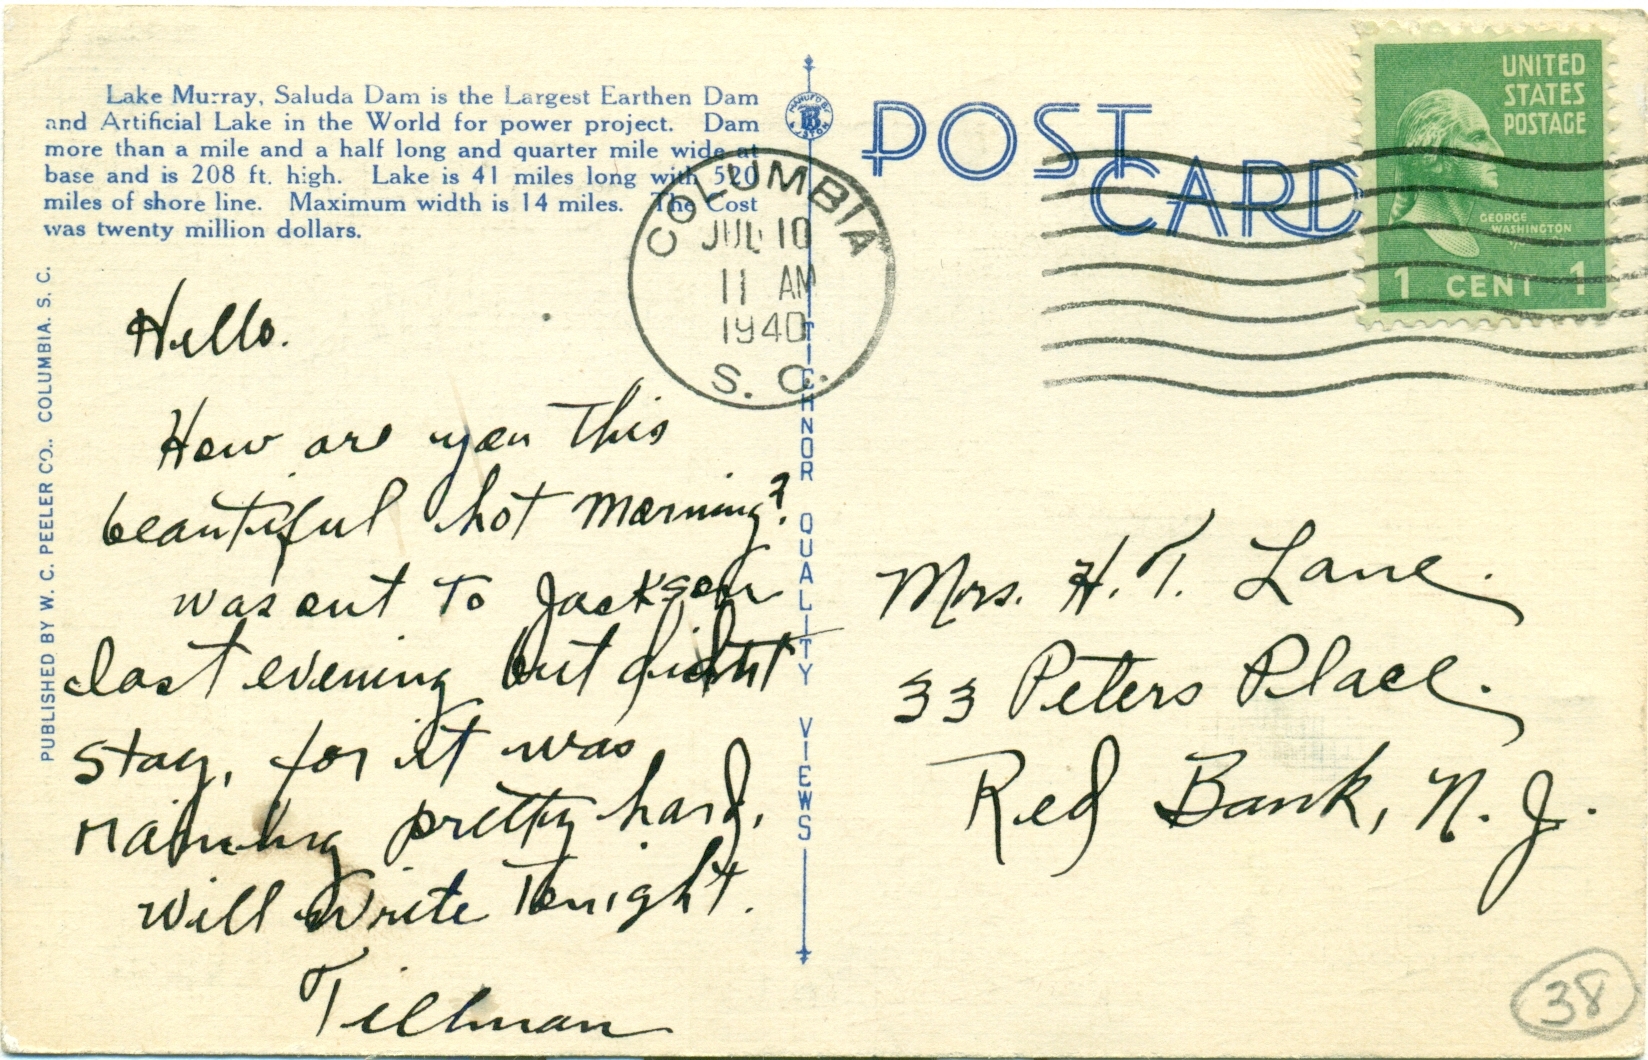 Lake Murray, Saluda Dam is the Largest Earthen Dam
and Artificial Lake in the World for power project. Dam
more than a mile and a half long and quarter mile wide at
base and is 208 ft. high. Lake is 41 miles long with 520
miles of shore line. Maximum width is 14 miles. The Cost
was twenty million dollars.
PUBLISHED BY W. C. PEELER CO., COLUMBIA, S. C.
Hello.
How are you this
beautiful hot morning?
was out to Jackson
last evening but didnt
stay, for it was
raining pretty hard,
will write tonight.
Tillman
TICHNOR QUALITY VIEWS
POST
CARD
COLUMBIA
JUL 10
11 AM
1940
S. C.
UNITED
STATES
POSTAGE
GEORGE
WASHINGTON
1 CENT 1
Mrs. H. T. Lane.
33 Peters Place.
Red Bank, N. J.
38